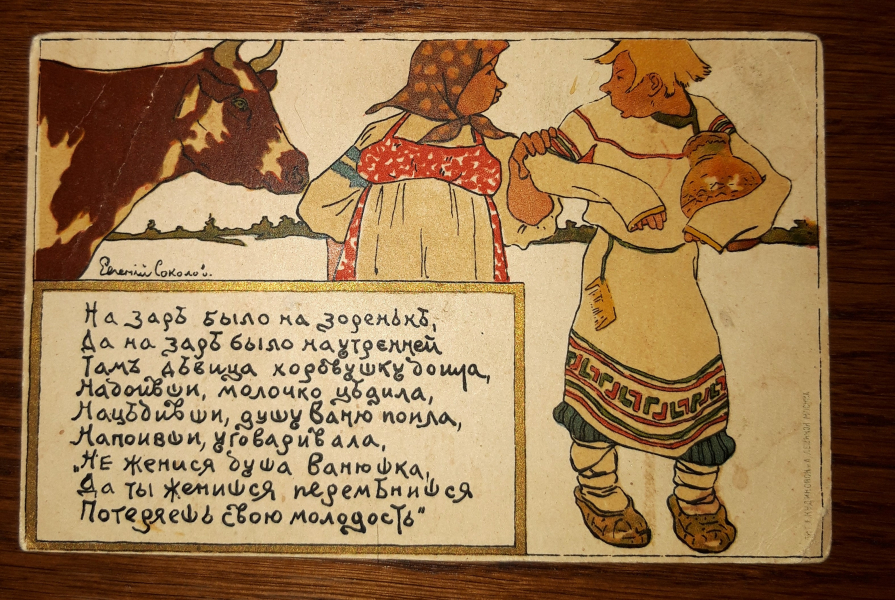 Евгеній Соколов.
На зарѣ было на зоренькѣ,
Да на зарѣ было на утренней
Тамъ дѣвица коровушку доила,
Надоивши, молочко цѣдила,
Нацѣдивши, душу Ваню поила,
Напоивши, уговаривала,
„Не женися душа Ванюшка,
Да ты женишся перемѣнишся
Потеряешь свою молодость“